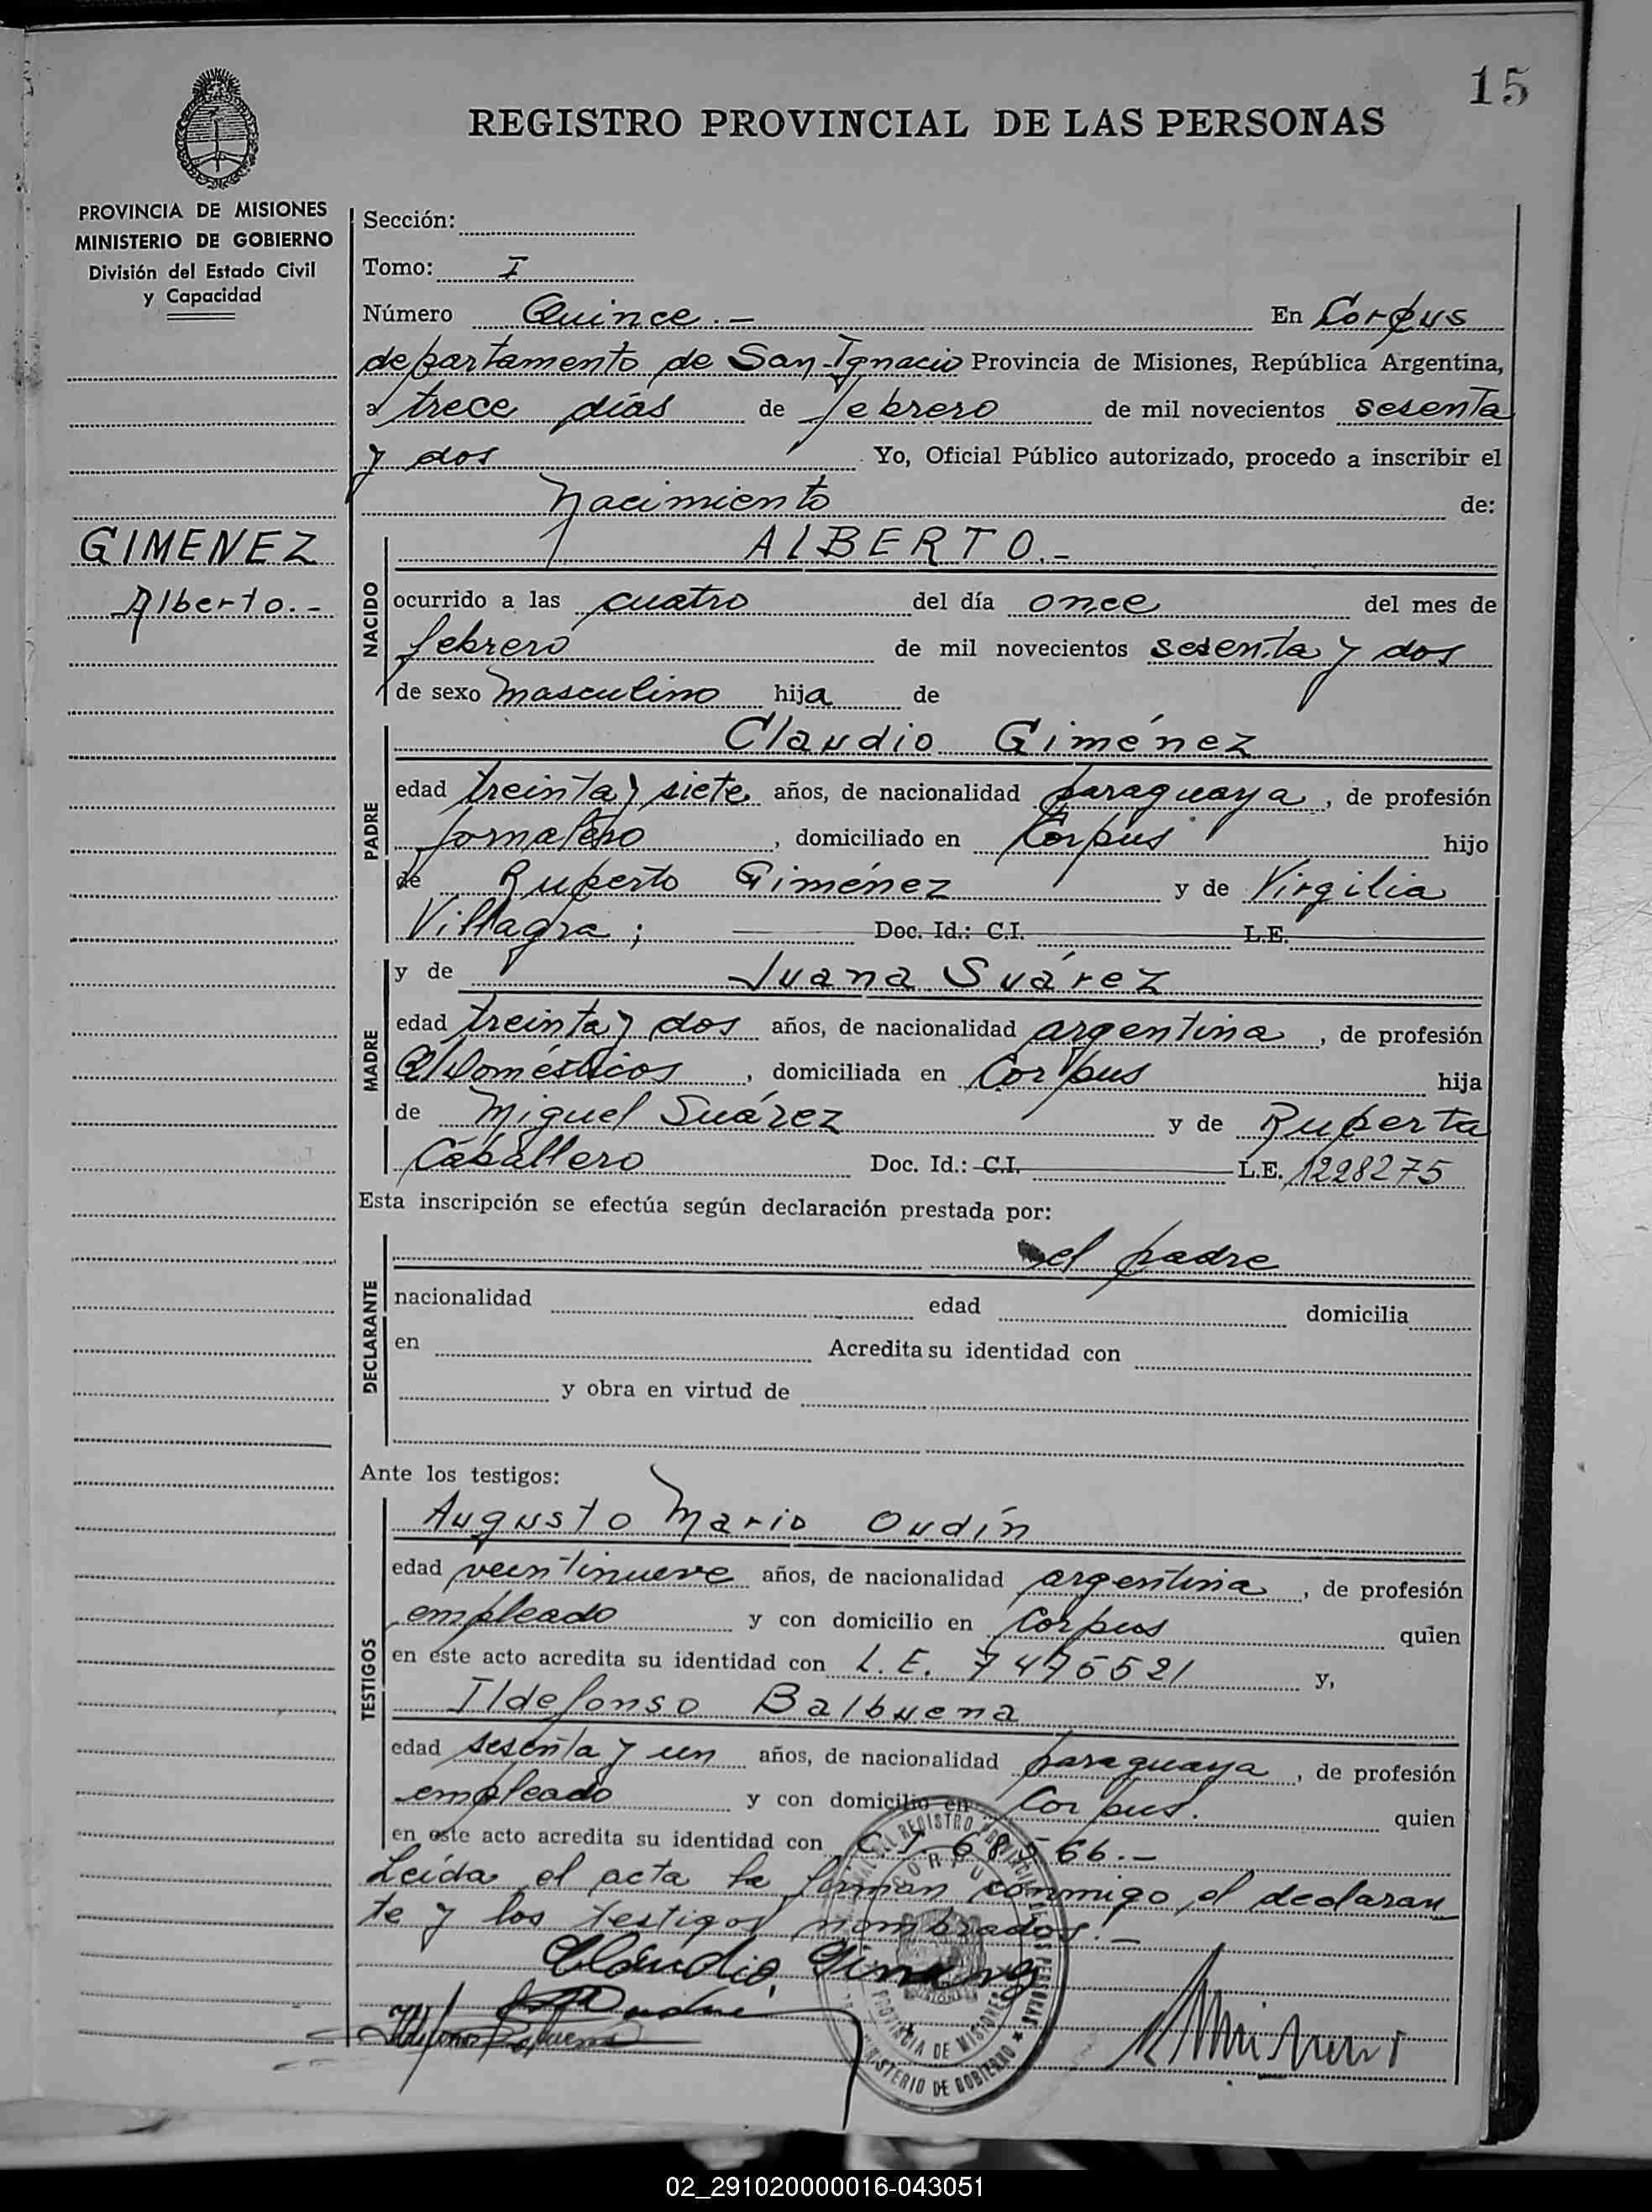 15
REGISTRO PROVINCIAL DE LAS PERSONAS
PROVINCIA DE MISIONES
MINISTERIO DE GOBIERNO
División del Estado Civil
y Capacidad
GIMENEZ
Alberto.-
Sección:
Tomo: I
Número Quince.- En Corpus
departamento de San Ignacio Provincia de Misiones, República Argentina,
a trece días de febrero de mil novecientos sesenta
y dos Yo, Oficial Público autorizado, procedo a inscribir el
Nacimiento de:
NACIDO
ALBERTO.-
ocurrido a las cuatro del día once del mes de
febrero de mil novecientos sesenta y dos
de sexo masculino hija de
PADRE
Claudio Giménez
edad treinta y siete años, de nacionalidad paraguaya, de profesión
jornalero, domiciliado en Corpus hijo
de Ruperto Giménez y de Virgilia
Villagra; Doc. Id.: C.I. L.E.
MADRE
y de Juana Suárez
edad treinta y dos años, de nacionalidad argentina, de profesión
Q/Domésticos, domiciliada en Corpus hija
de Miguel Suárez y de Ruperta
Caballero Doc. Id.: C.I. L.E. 1228275
Esta inscripción se efectúa según declaración prestada por:
DECLARANTE
el padre
nacionalidad edad domicilia
en Acredita su identidad con
y obra en virtud de
Ante los testigos:
TESTIGOS
Augusto Mario Oudín
edad veintinueve años, de nacionalidad argentina, de profesión
empleado y con domicilio en Corpus quien
en este acto acredita su identidad con L.E. 7475521 y,
Ildefonso Balbuena
edad sesenta y un años, de nacionalidad paraguaya, de profesión
empleado y con domicilio en Corpus. quien
en este acto acredita su identidad con C.I. 68566.-
Leída el acta la firman conmigo el declaran
te y los testigos nombrados.-
Claudio Gimenez
Ildefonso Balbuena
REGISTRO PROVINCIAL DE LAS PERSONAS
CORPUS
MISIONES
PROVINCIA DE MISIONES
MINISTERIO DE GOBIERNO
02_291020000016-043051